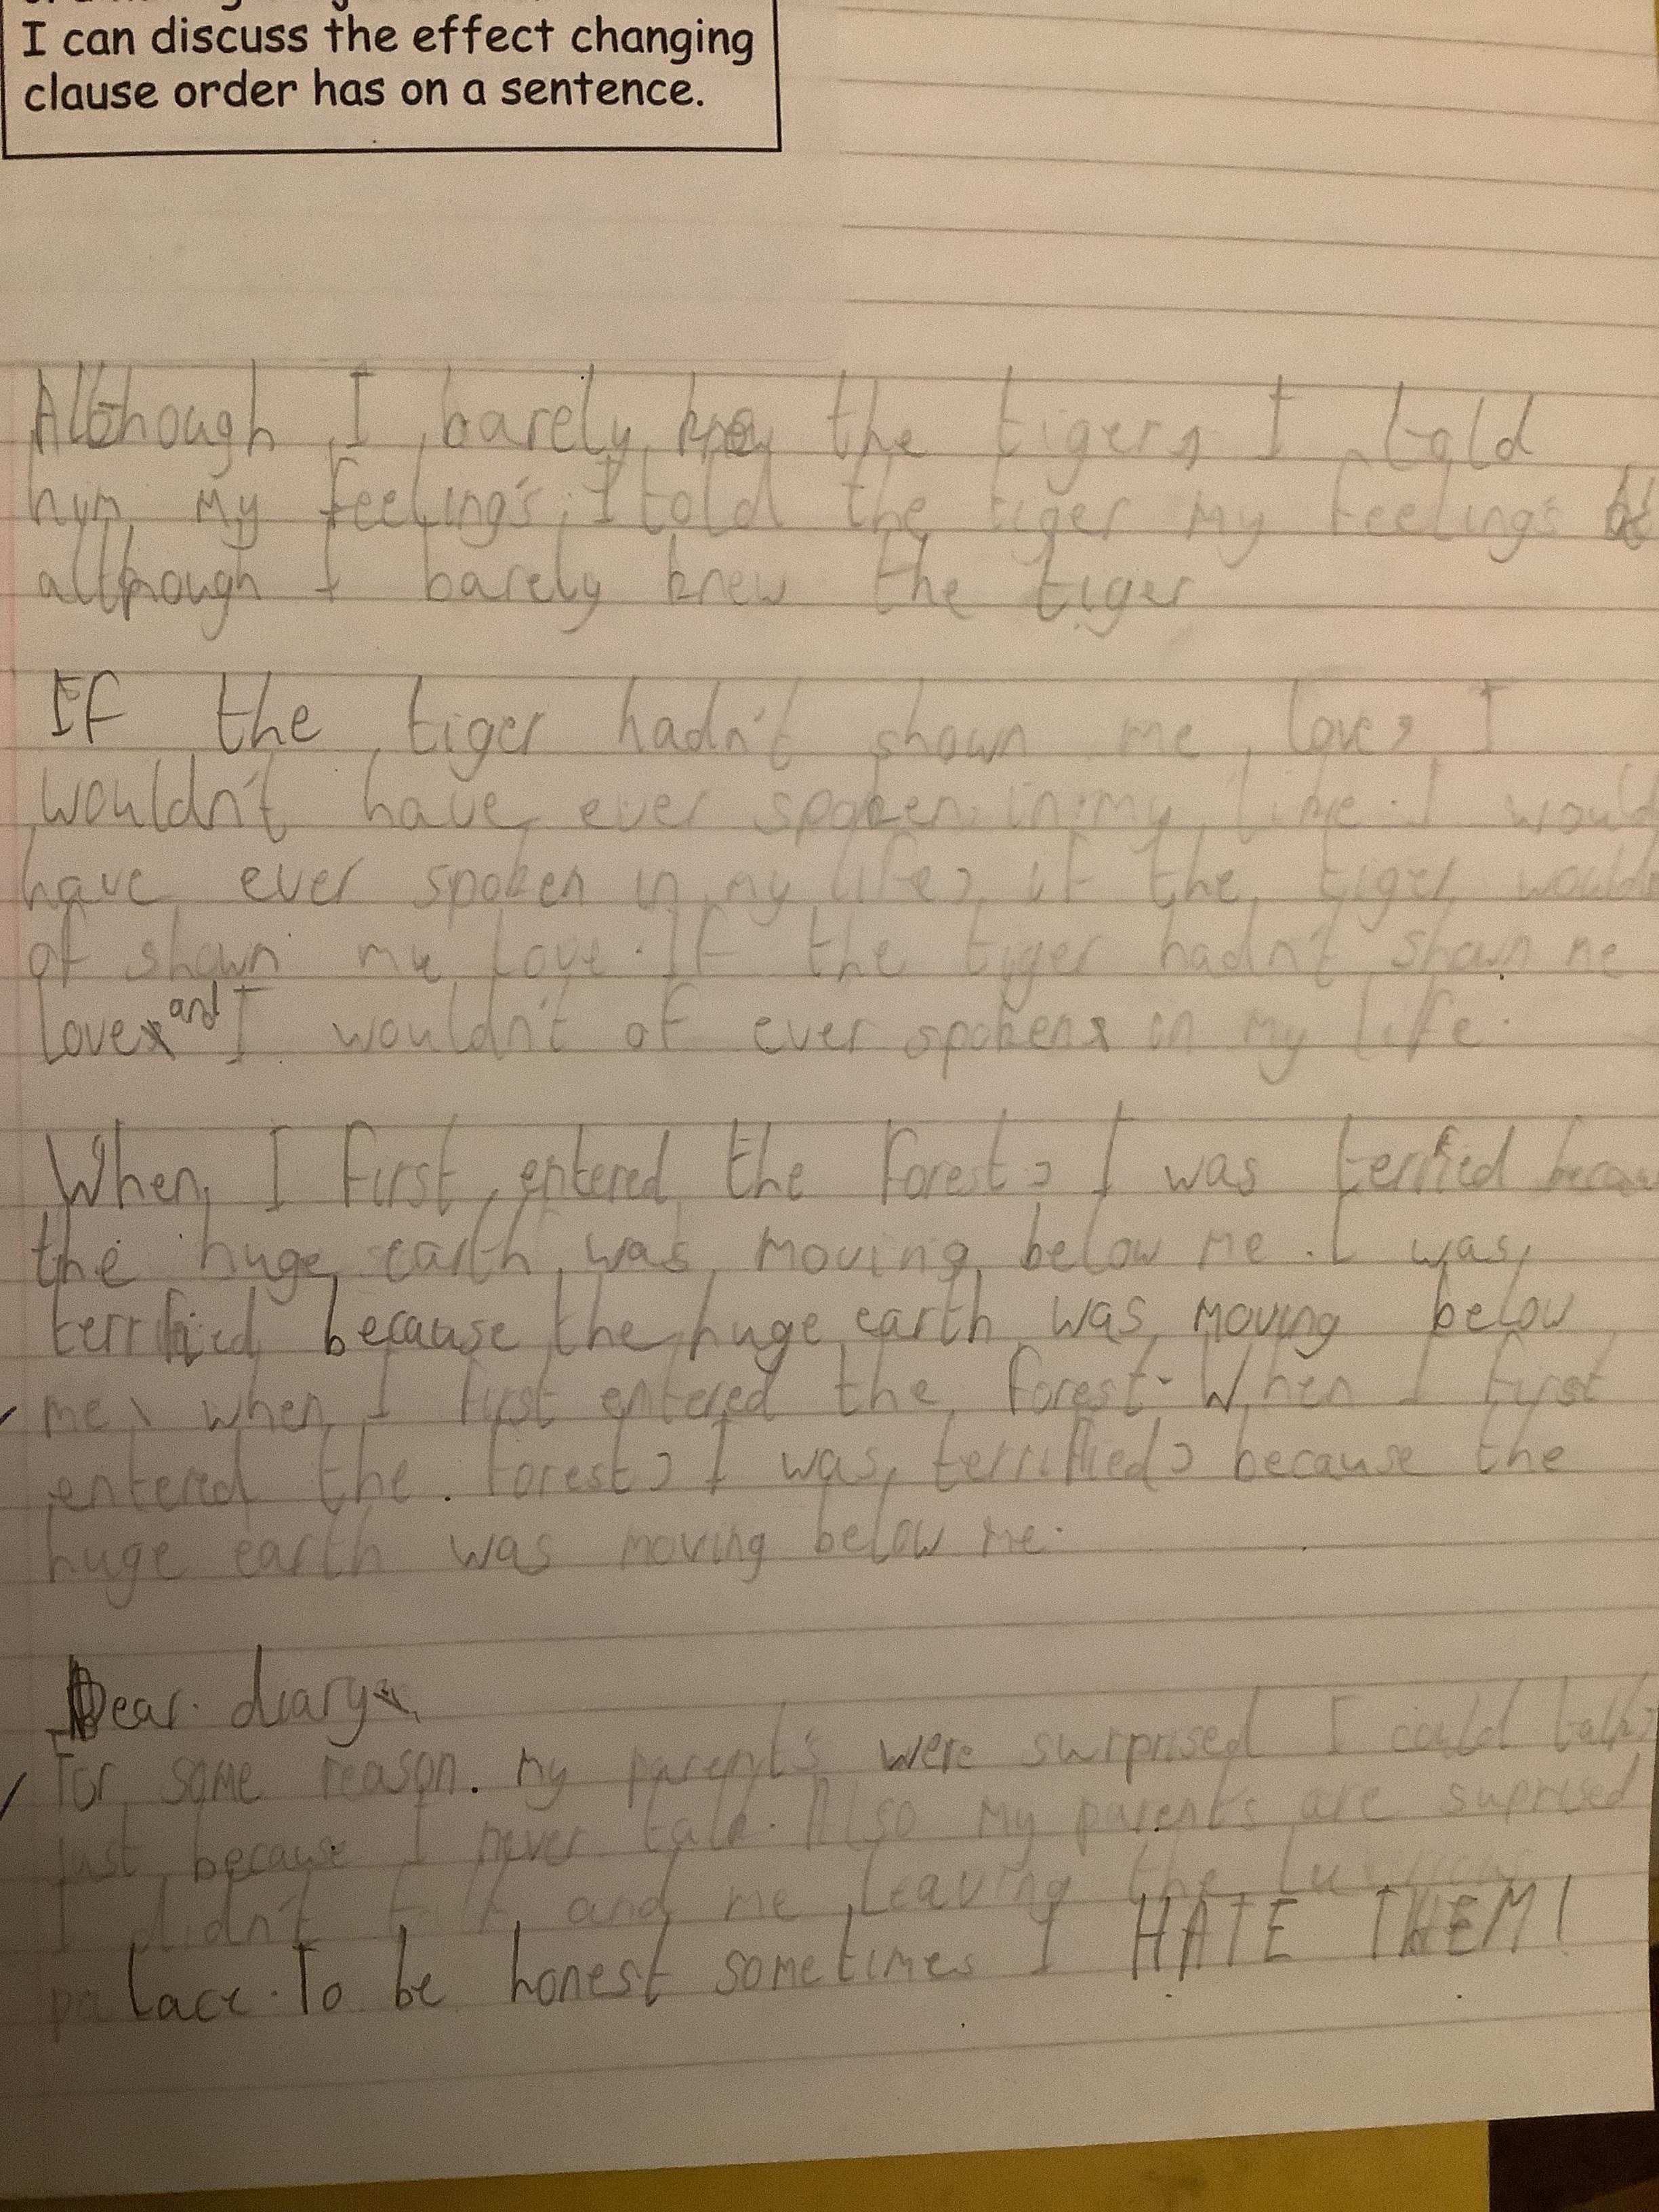 I can discuss the effect changing
clause order has on a sentence.
Although I barely knew the tiger, I told
him my feelings. I told the tiger my feelings
although I barely knew the tiger
If the tiger hadn't shown me love, I
wouldn't have ever spoken in my life. I would
have ever spoken in my life, if the tiger would
of shown me love. If the tiger hadn't shown me
love and I wouldn't of ever spoken in my life.
When I first entered the forest, I was terrified
the huge earth was moving below me. I was
terrified because the huge earth was moving below
me, when I first entered the forest. When I first
entered the forest, I was terrified, because the
huge earth was moving below me.
Dear diary
For some reason. my parent's were surprised I could talk
Just because I never talk. Also my parent's are suprised
I didn't and me leaving the
palace. To be honest sometimes I HATE THEM!